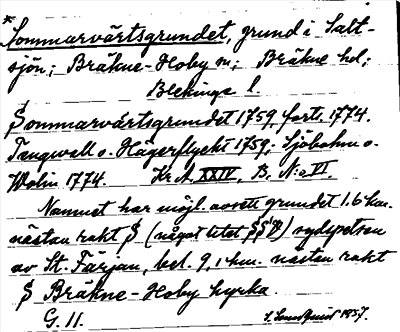 * Sommarvärtsgrundet, grund i Salt-
sjön; Bräkne-Hoby sn; Bräkne hd;
Blekinge l.
Sommarvärtsgrundet 1759, forts. 1774.
Tangwall o. Hägerflyckt 1759; Sjöbohm o.
Wolin 1774. Kr. A. XXIV, B, N:o VI.
Namnet har möjl. avsett grundet 1.6 km.
nästan rakt S (något litet SSV) sydspetsen
av St. Färjan, bel. 9,1 km. nästan rakt
S Bräkne-Hoby kyrka.
G. 11. 1957.